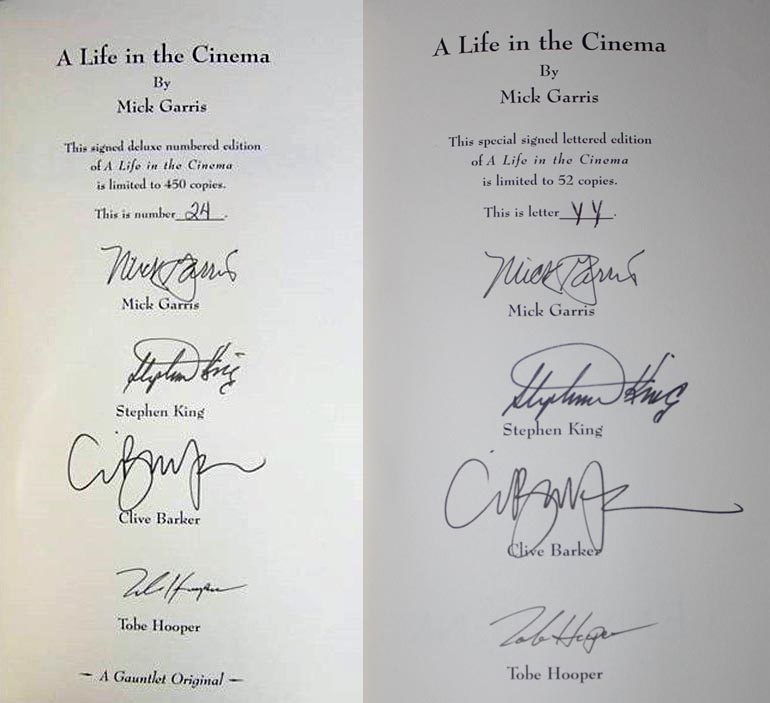 A Life in the Cinema
By
Mick Garris
This signed deluxe numbered edition
of A Life in the Cinema
is limited to 450 copies.
This is number 24.
Mick Garris
Mick Garris
Stephen King
Stephen King
Clive Barker
Clive Barker
Tobe Hooper
Tobe Hooper
~ A Gauntlet Original ~
A Life in the Cinema
By
Mick Garris
This special signed lettered edition
of A Life in the Cinema
is limited to 52 copies.
This is letter YY.
Mick Garris
Mick Garris
Stephen King
Stephen King
Clive Barker
Clive Barker
Tobe Hooper
Tobe Hooper